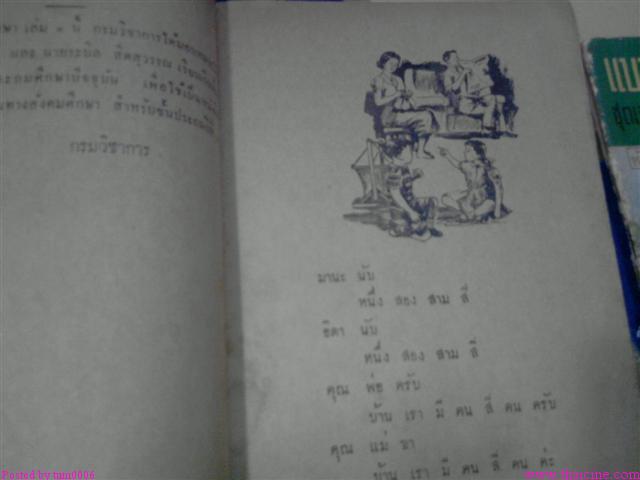 ษา เล่ม ๑ นี้ กรมวิชาการได้มอบ
และ นายระบิล สิตสุวรรณ เรียบเรียง
ประถมศึกษาปัจจุบัน เพื่อใช้เป็น
ทางสังคมศึกษา สำหรับชั้นประถมปีที่
กรมวิชาการ
มานะ นับ
หนึ่ง สอง สาม สี่
ธิดา นับ
หนึ่ง สอง สาม สี่
คุณ พ่อ ครับ
บ้าน เรา มี คน สี่ คน ครับ
คุณ แม่ ขา
บ้าน เรา มี คน สี่ คน ค่ะ
แบ
Posted by tum0006
www.thaicine.com